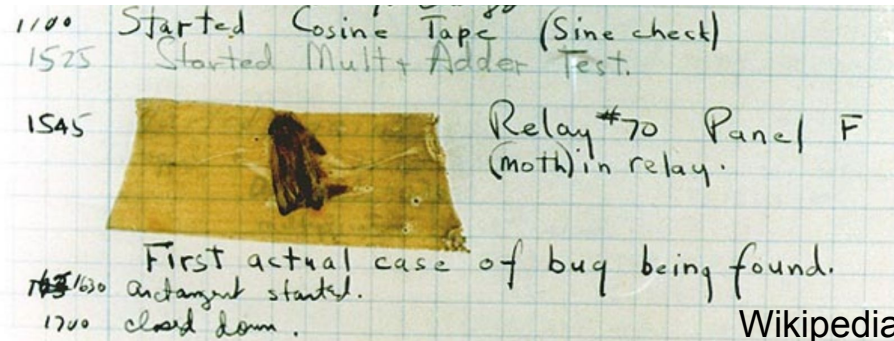 1100 Started Cosine Tape (Sine check)
1525 Started Mult + Adder Test.
1545 Relay #70 Panel F
(moth) in relay.
First actual case of bug being found.
1630 arctangent started.
1700 closed down.
Wikipedia